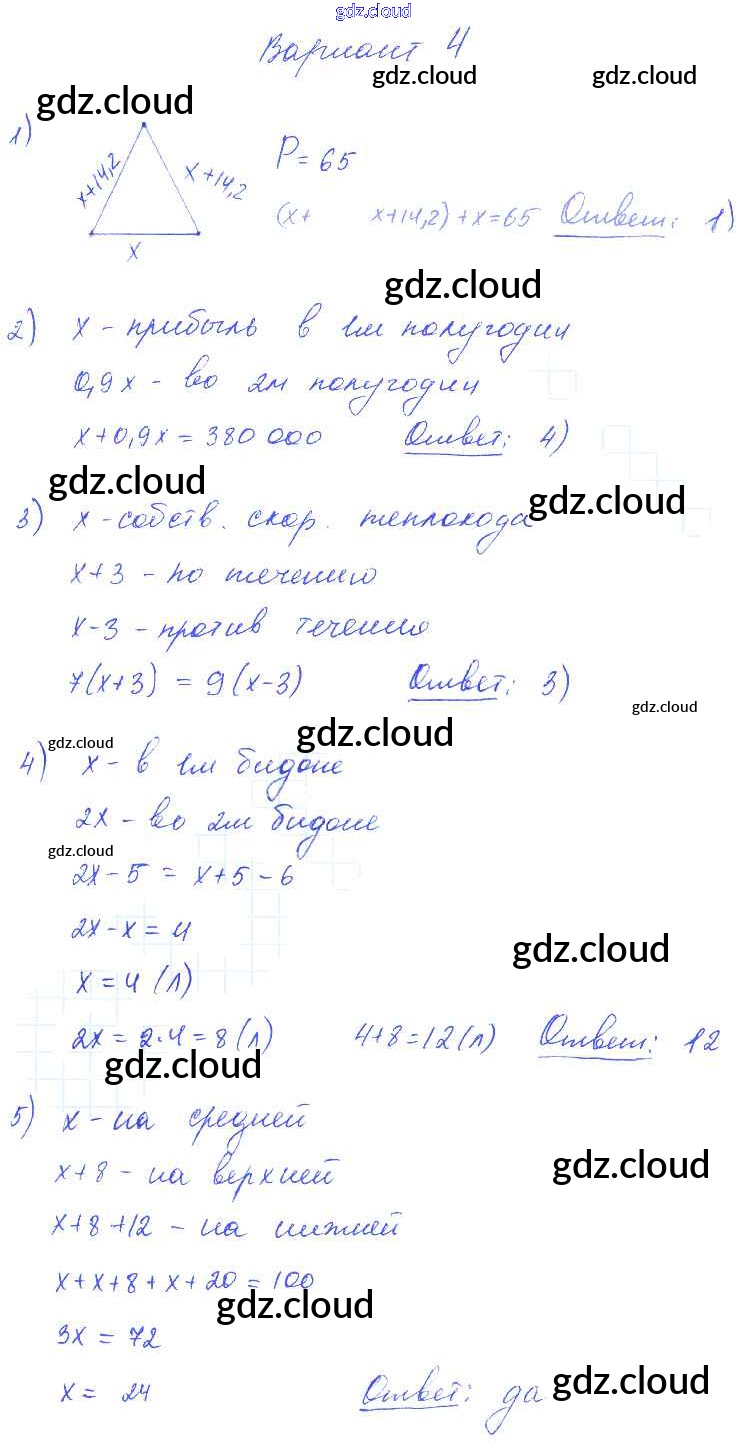 gdz.cloud
Вариант 4
gdz.cloud
gdz.cloud
gdz.cloud
1)
x+14,2
x+14,2
x
P=65
(x+ x+14,2)+x=65 Ответ: 1)
gdz.cloud
2) x - прибыль в 1м полугодии
0,9x - во 2м полугодии
x+0,9x=380 000 Ответ: 4)
gdz.cloud
gdz.cloud
3) x - собств. скор. теплохода
x+3 - по течению
x-3 - против течения
7(x+3) = 9(x-3) Ответ: 3)
gdz.cloud
gdz.cloud
gdz.cloud
4) x - в 1м бидоне
2x - во 2м бидоне
gdz.cloud
2x-5 = x+5-6
2x-x=4
gdz.cloud
x=4(л)
2x=2·4=8(л) 4+8=12(л) Ответ: 12
gdz.cloud
5) x - на средней
x+8 - на верхней
gdz.cloud
x+8+12 - на нижней
x+x+8+x+20=100
gdz.cloud
3x=72
x= 24 Ответ: да
gdz.cloud